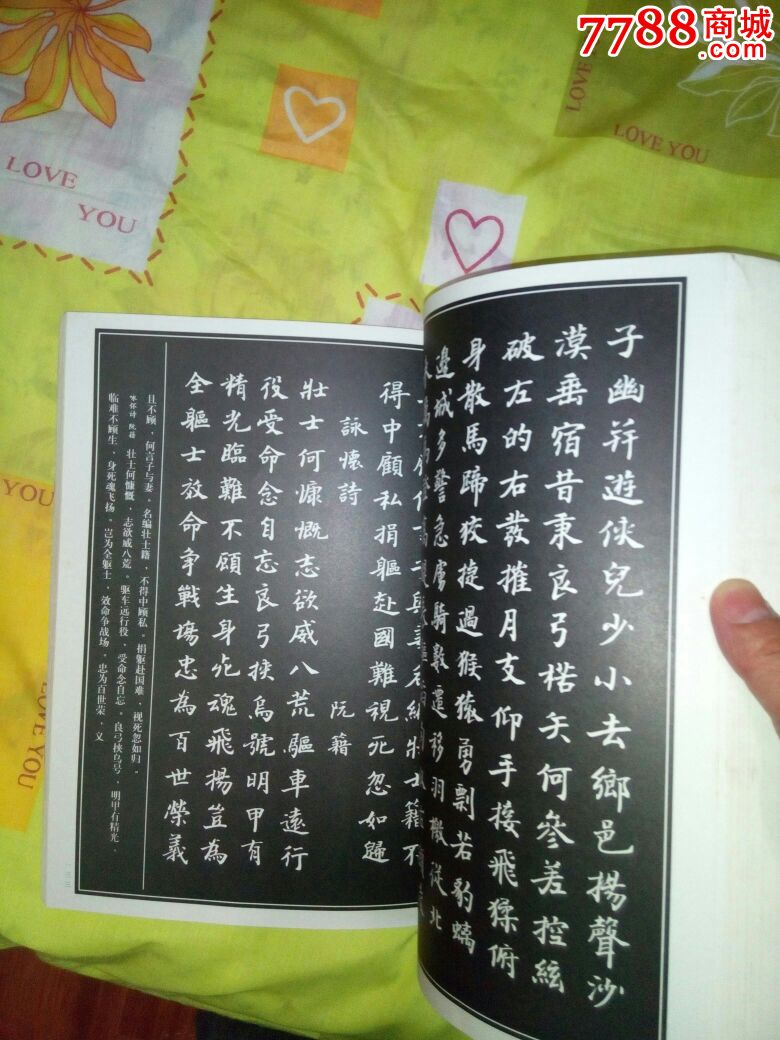 7788商城
.com
LOVE
YOU
LOVE
LOVE YOU
YOU
LOVE YOU
子幽并遊俠兒少小去鄉邑揚聲沙
漠垂宿昔秉良弓楛矢何參差控絃
破左的右發摧月支仰手接飛猱俯
身散馬蹄狡捷過猴猿勇剽若豹螭
邊城多警急虜騎數遷移羽檄從北
得中顧私捐軀赴國難視死忽如歸
詠懷詩 阮籍
壯士何慷慨志欲威八荒驅車遠行
役受命念自忘良弓挾烏號明甲有
精光臨難不顧生身死魂飛揚豈為
全軀士效命爭戰場忠為百世榮義
且不顾，何言子与妻。名编壮士籍，不得中顾私。捐躯赴国难，视死忽如归。
咏怀诗 阮籍 壮士何慷慨，志欲威八荒。驱车远行役，受命念自忘。良弓挟乌号，明甲有精光。
临难不顾生，身死魂飞扬。岂为全躯士，效命争战场。忠为百世荣，义